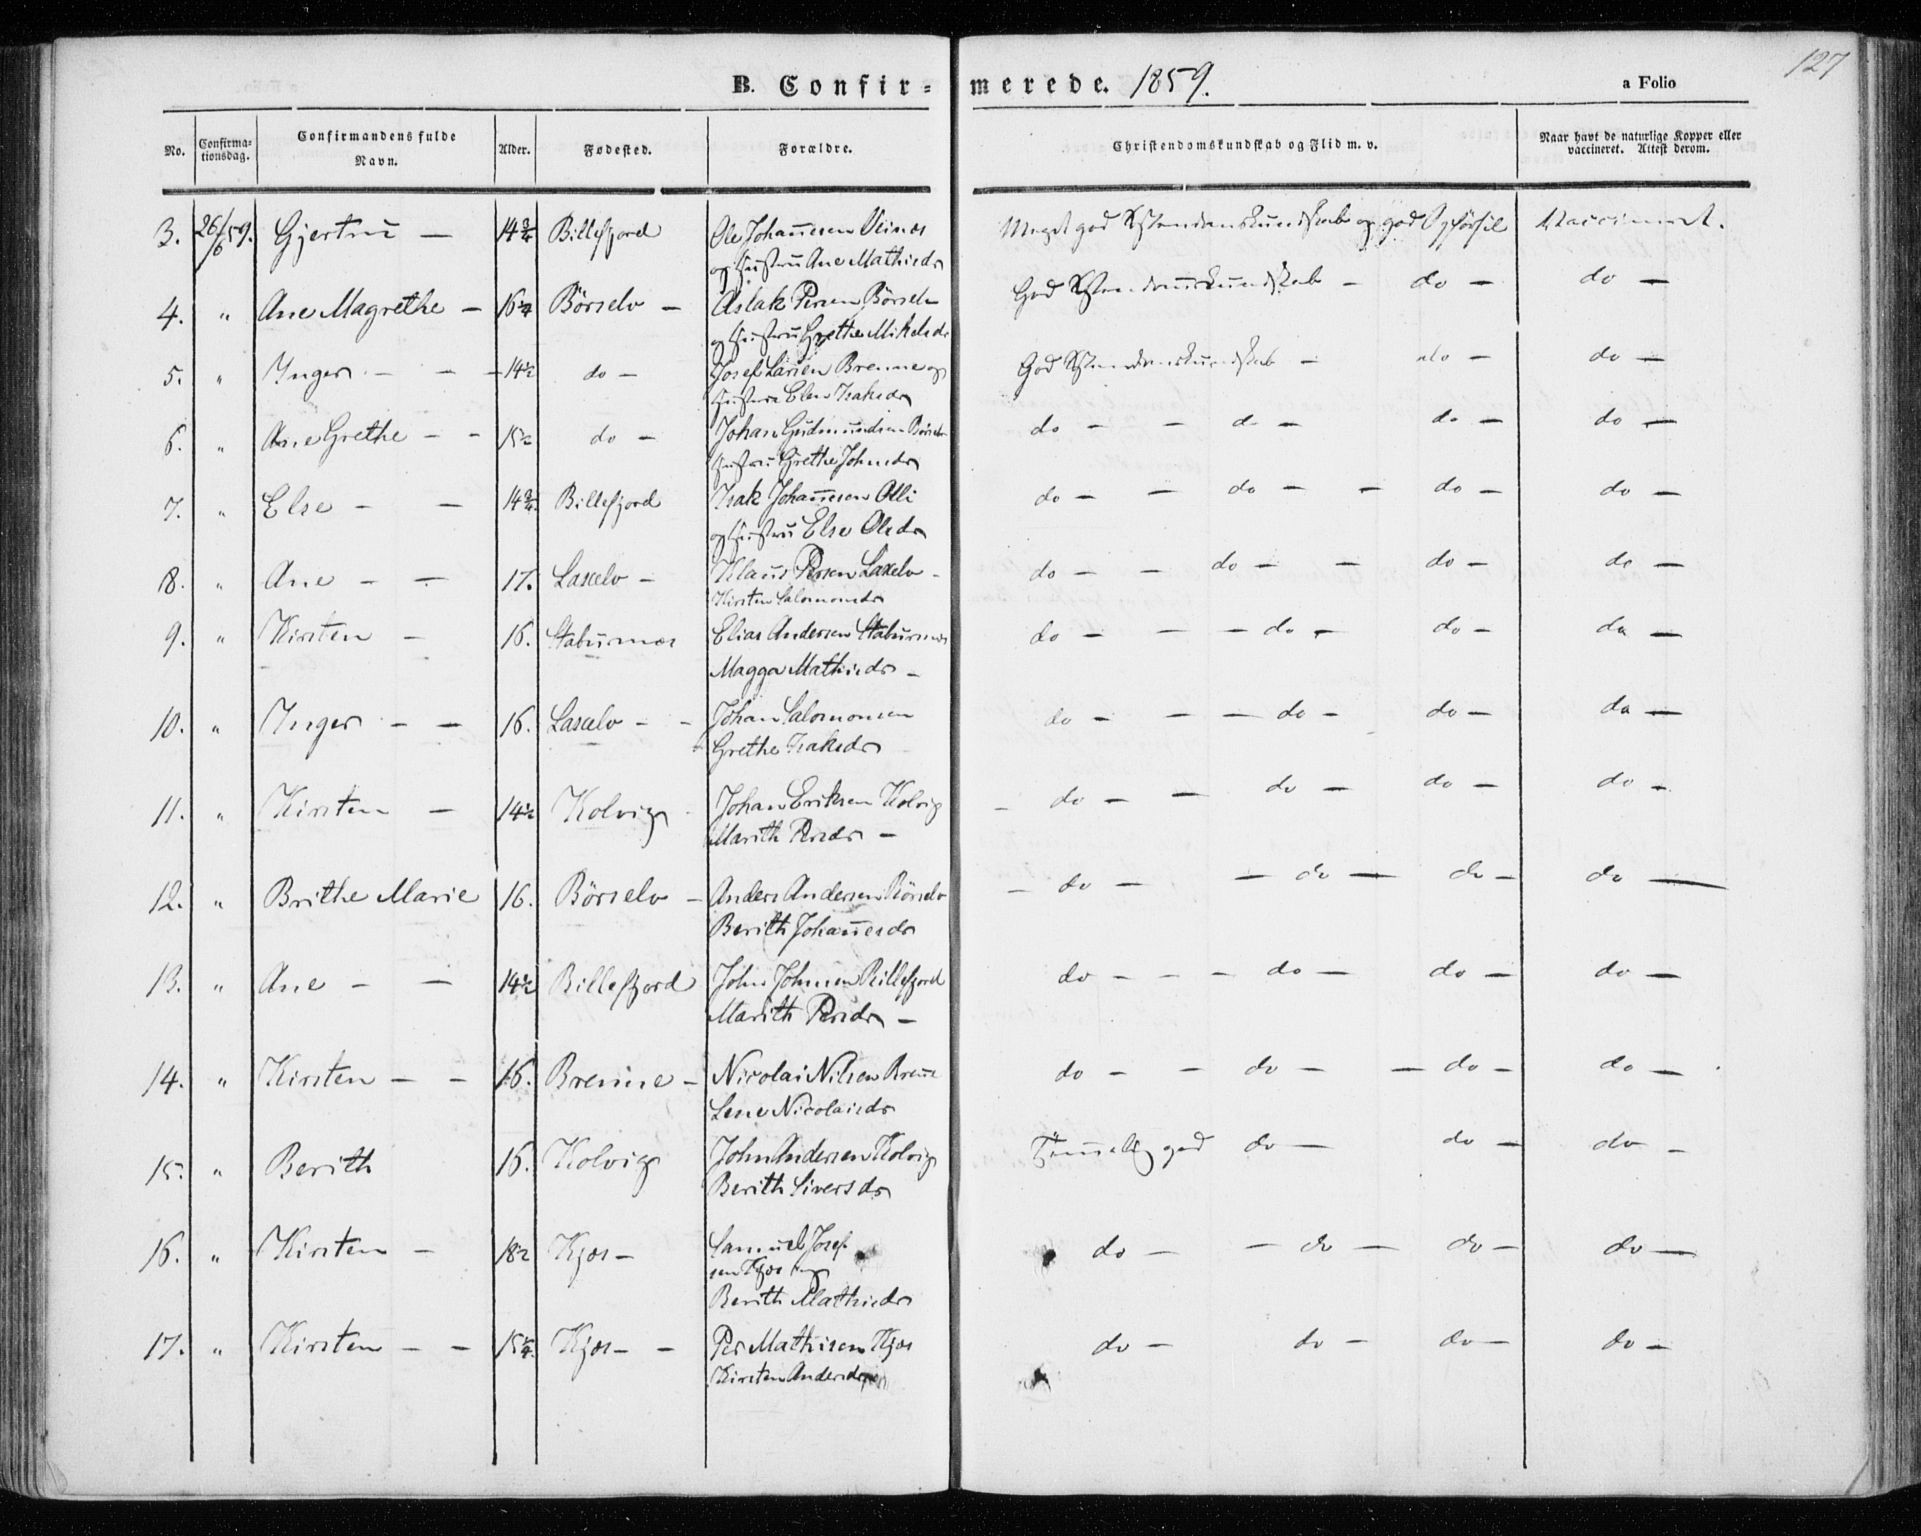 127
B. Confirmerede. 1859.
a Folio
No. Confirmationsdag. Confirmandens fulde Navn. Alder. Fødested. Forældre. Christendomskundskab og Flid m. v. Naar havt de naturlige Kopper eller vaccineret. Attest derom.
3. 26/6 59. Gjertru — 14 3/4 Billefjord Ole Johannesen Meget god og god Opførsel Vaccineret.
og Hustru Ane Mathisdr
4. " Ane Magrethe — 16 1/2 Börselv — Aslak Persen Börselv God — do — do —
og Hustru Grethe Mikelsdr
5. " Inger — — 14 1/2 do — Josef Larsen Brenne og God — do — do —
Hustru Elen Isaksdr
6. " Ane Grethe — — 15 1/2 do — Johan Gudmundsen Börselv do — — do — do — do —
Hustru Grethe Johnsdr
7. " Else — — 14 3/4 Billefjord Isak Johannesen Olli do — — do — — do — do —
og Hustru Else Olsdr
8. " Ane — — 17. Laxelv — Klaus Persen Laxelv — do — — do — — do — do —
Kirsten Salomonsdr
9. " Kirsten — 16. Staburnæs Elias Andersen Staburnæs do — — — do — do — do —
Magga Mathisdr —
10. " Inger — — 16. Laxelv — — Johan Salomonsen do — — — do — do — do —
Grethe Isaksdr
11. " Kirsten — 14 1/2 Kolvig Johan Eriksen Kolvig — do — — do — do — do —
Marith Persdr —
12. " Brithe Marie 16. Börselv — Anders Andersen Börselv — do — — do — do — do —
Berith Johannesdr
13. " Ane — — 14 1/2 Billefjord John Johnsen Billefjord do — — — do — do — do —
Marith Persdr —
14. " Kirsten — — 16. Brenne — Nicolai Nilsen Brenne do — — do — — do — do —
Lene Nicolaisdr
15. " Berith 16. Kolvig John Andersen Kolvig Temmelig god do — do — do —
Berith Siversdr
16. " Kirsten — 18 1/2 Kjæs — Samuel Josef- do — — do — do — do —
sen Kjæs og
Berith Mathisdr
17. " Kirsten — — 15 1/4 Kjæs — — Per Mathisen Kjæs do — do — do — do —
Kirsten Andersdr